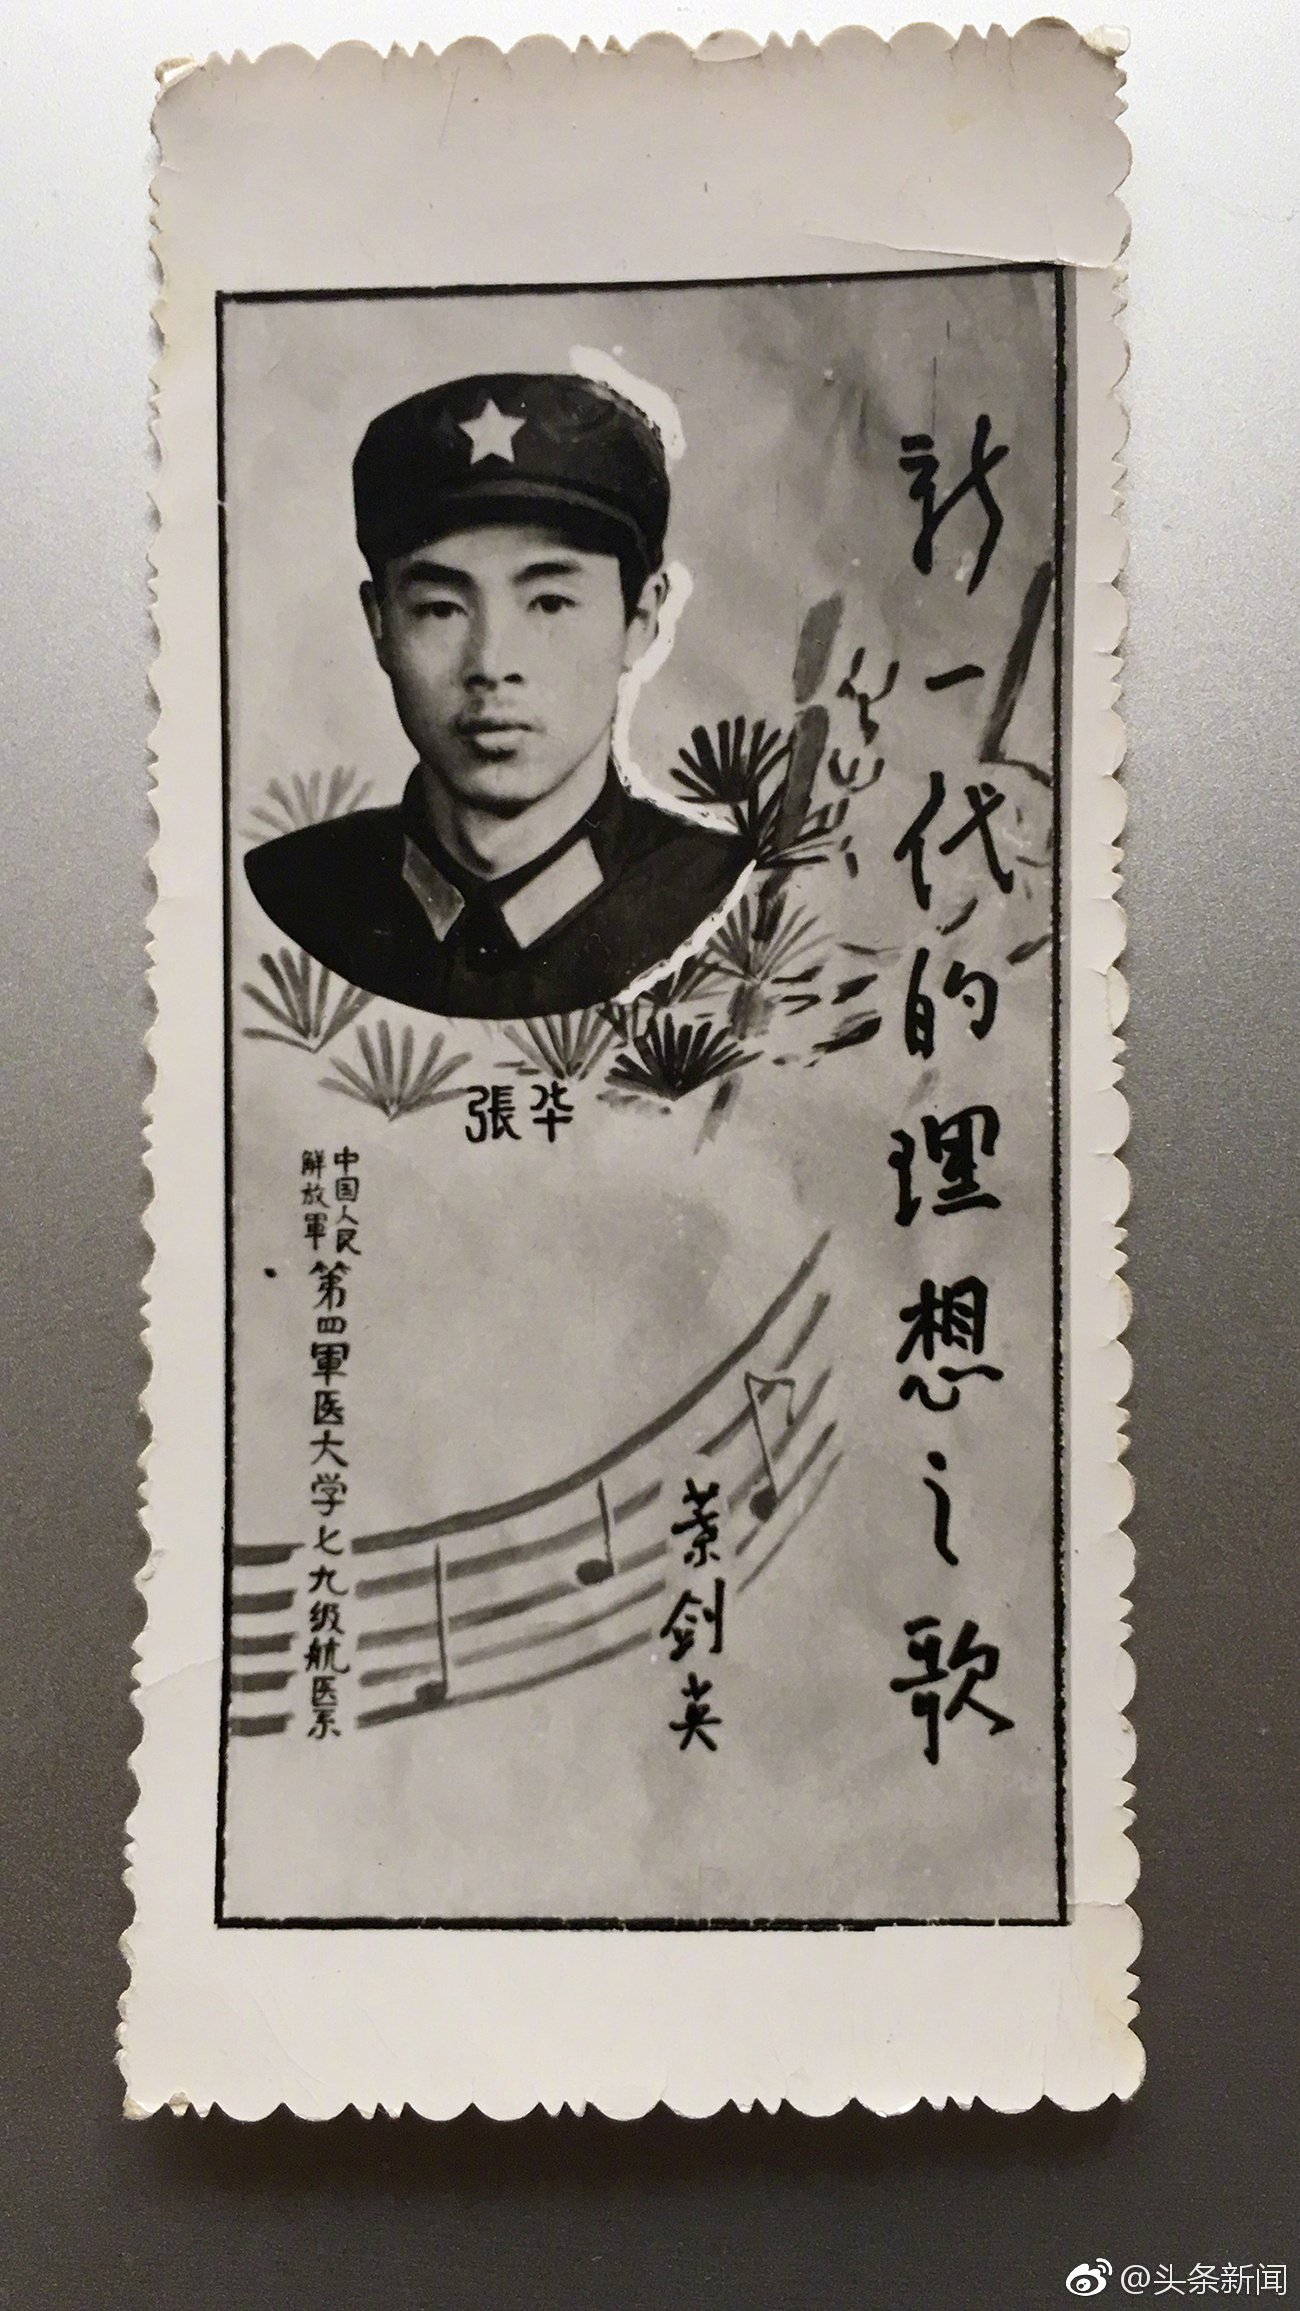 新一代的理想之歌
葉剑英
張华
中国人民
解放軍
第四軍医大学七九级航医系
@头条新闻